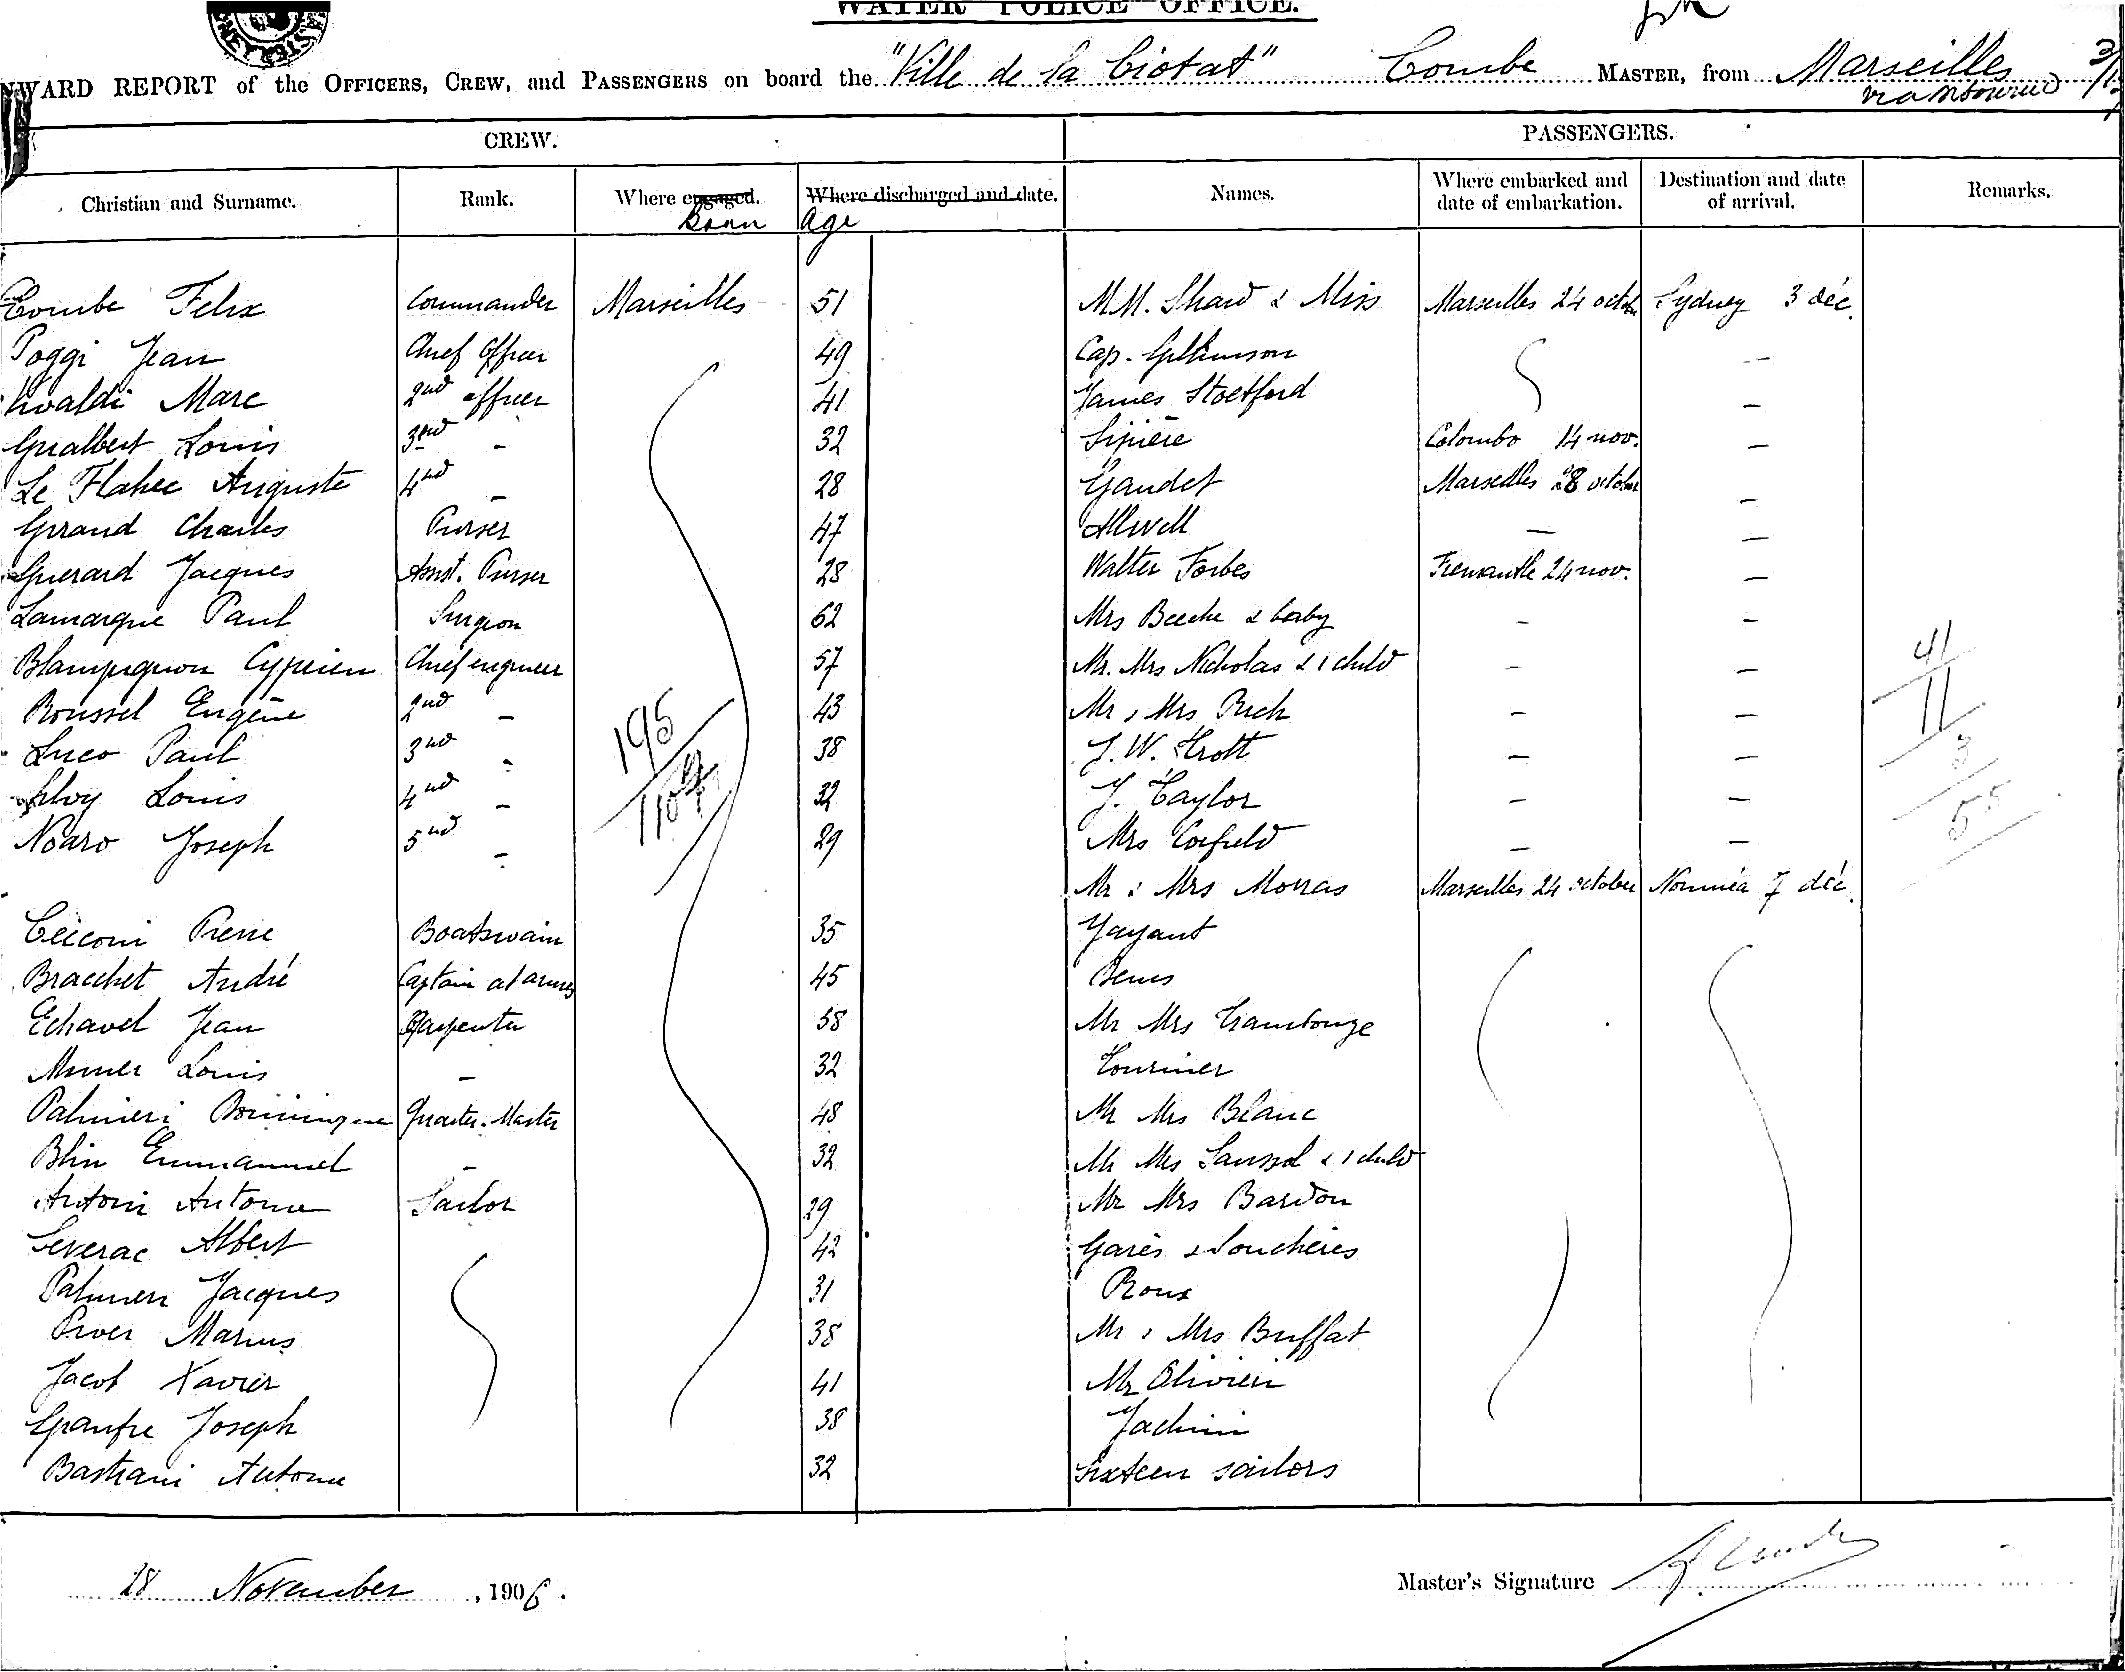 WATER POLICE OFFICE.
WARD REPORT of the OFFICERS, CREW, and PASSENGERS on board the "Ville de la Ciotat" Combe MASTER, from Marseilles
CREW. PASSENGERS.
Christian and Surname. Rank. Where engaged. Where discharged and date. Names. Where embarked and date of embarkation. Destination and date of arrival. Remarks.
Born Age
Combe Felix Commander Marseilles 51 MM. Shaw & Miss Marseilles 24 octobr Sydney 3 déc.
Poggi Jean Chief Officer 49 Cap. Gilkinson —
Marc 2nd officer 41 James —
Gualbert Louis 3rd - 32 Sipière Colombo 14 nov. —
Le Flahec Auguste 4nd - 28 Gaudet Marseilles 28 october —
Girand Charles Purser 47 — —
Guerard Jacques Assist. Purser 28 Walter Forbes Fremantle 24 nov. —
Lamarque Paul Surgeon 62 Mrs Beeche & baby — —
Blampignon Cyprien Chief engineer 57 Mr. Mrs Nicholas & 1 child — —
Roussel Eugène 2nd — 43 Mr & Mrs Rich — —
Luco Paul 3nd - 38 J. W. — —
Louis 4nd - 32 J. Taylor — —
Noaro Joseph 5nd - 29 Mrs Corfield — —
Mr & Mrs Morras Marseilles 24 october Nouméa 7 déc.
Cecconi Pierre Boatswain 35 Yayant
Bracchet André Captain at arms 45
Echavel Jean Carpenter 58 Mr Mrs Trambouze
Louis — 32 Tourinier
Palmieri Dominique Quarter-Master 48 Mr Mrs Blanc
Blin Emmanuel — 32 Mr Mrs Saussol & 1 child
Antoni Antoine Sailor 29 Mr Mrs Bardon
Severac Albert 42 Garès & Souchères
Palmieri Jacques 31 Roux
Marius 38 Mr & Mrs Buffat
Jacob Xavier 41 Mr Olivieri
Joseph 38 Jachini
Bastiani Antoine 32 Sixteen sailors
195
110
41
11
3
55
28 November, 1906.
Master's Signature